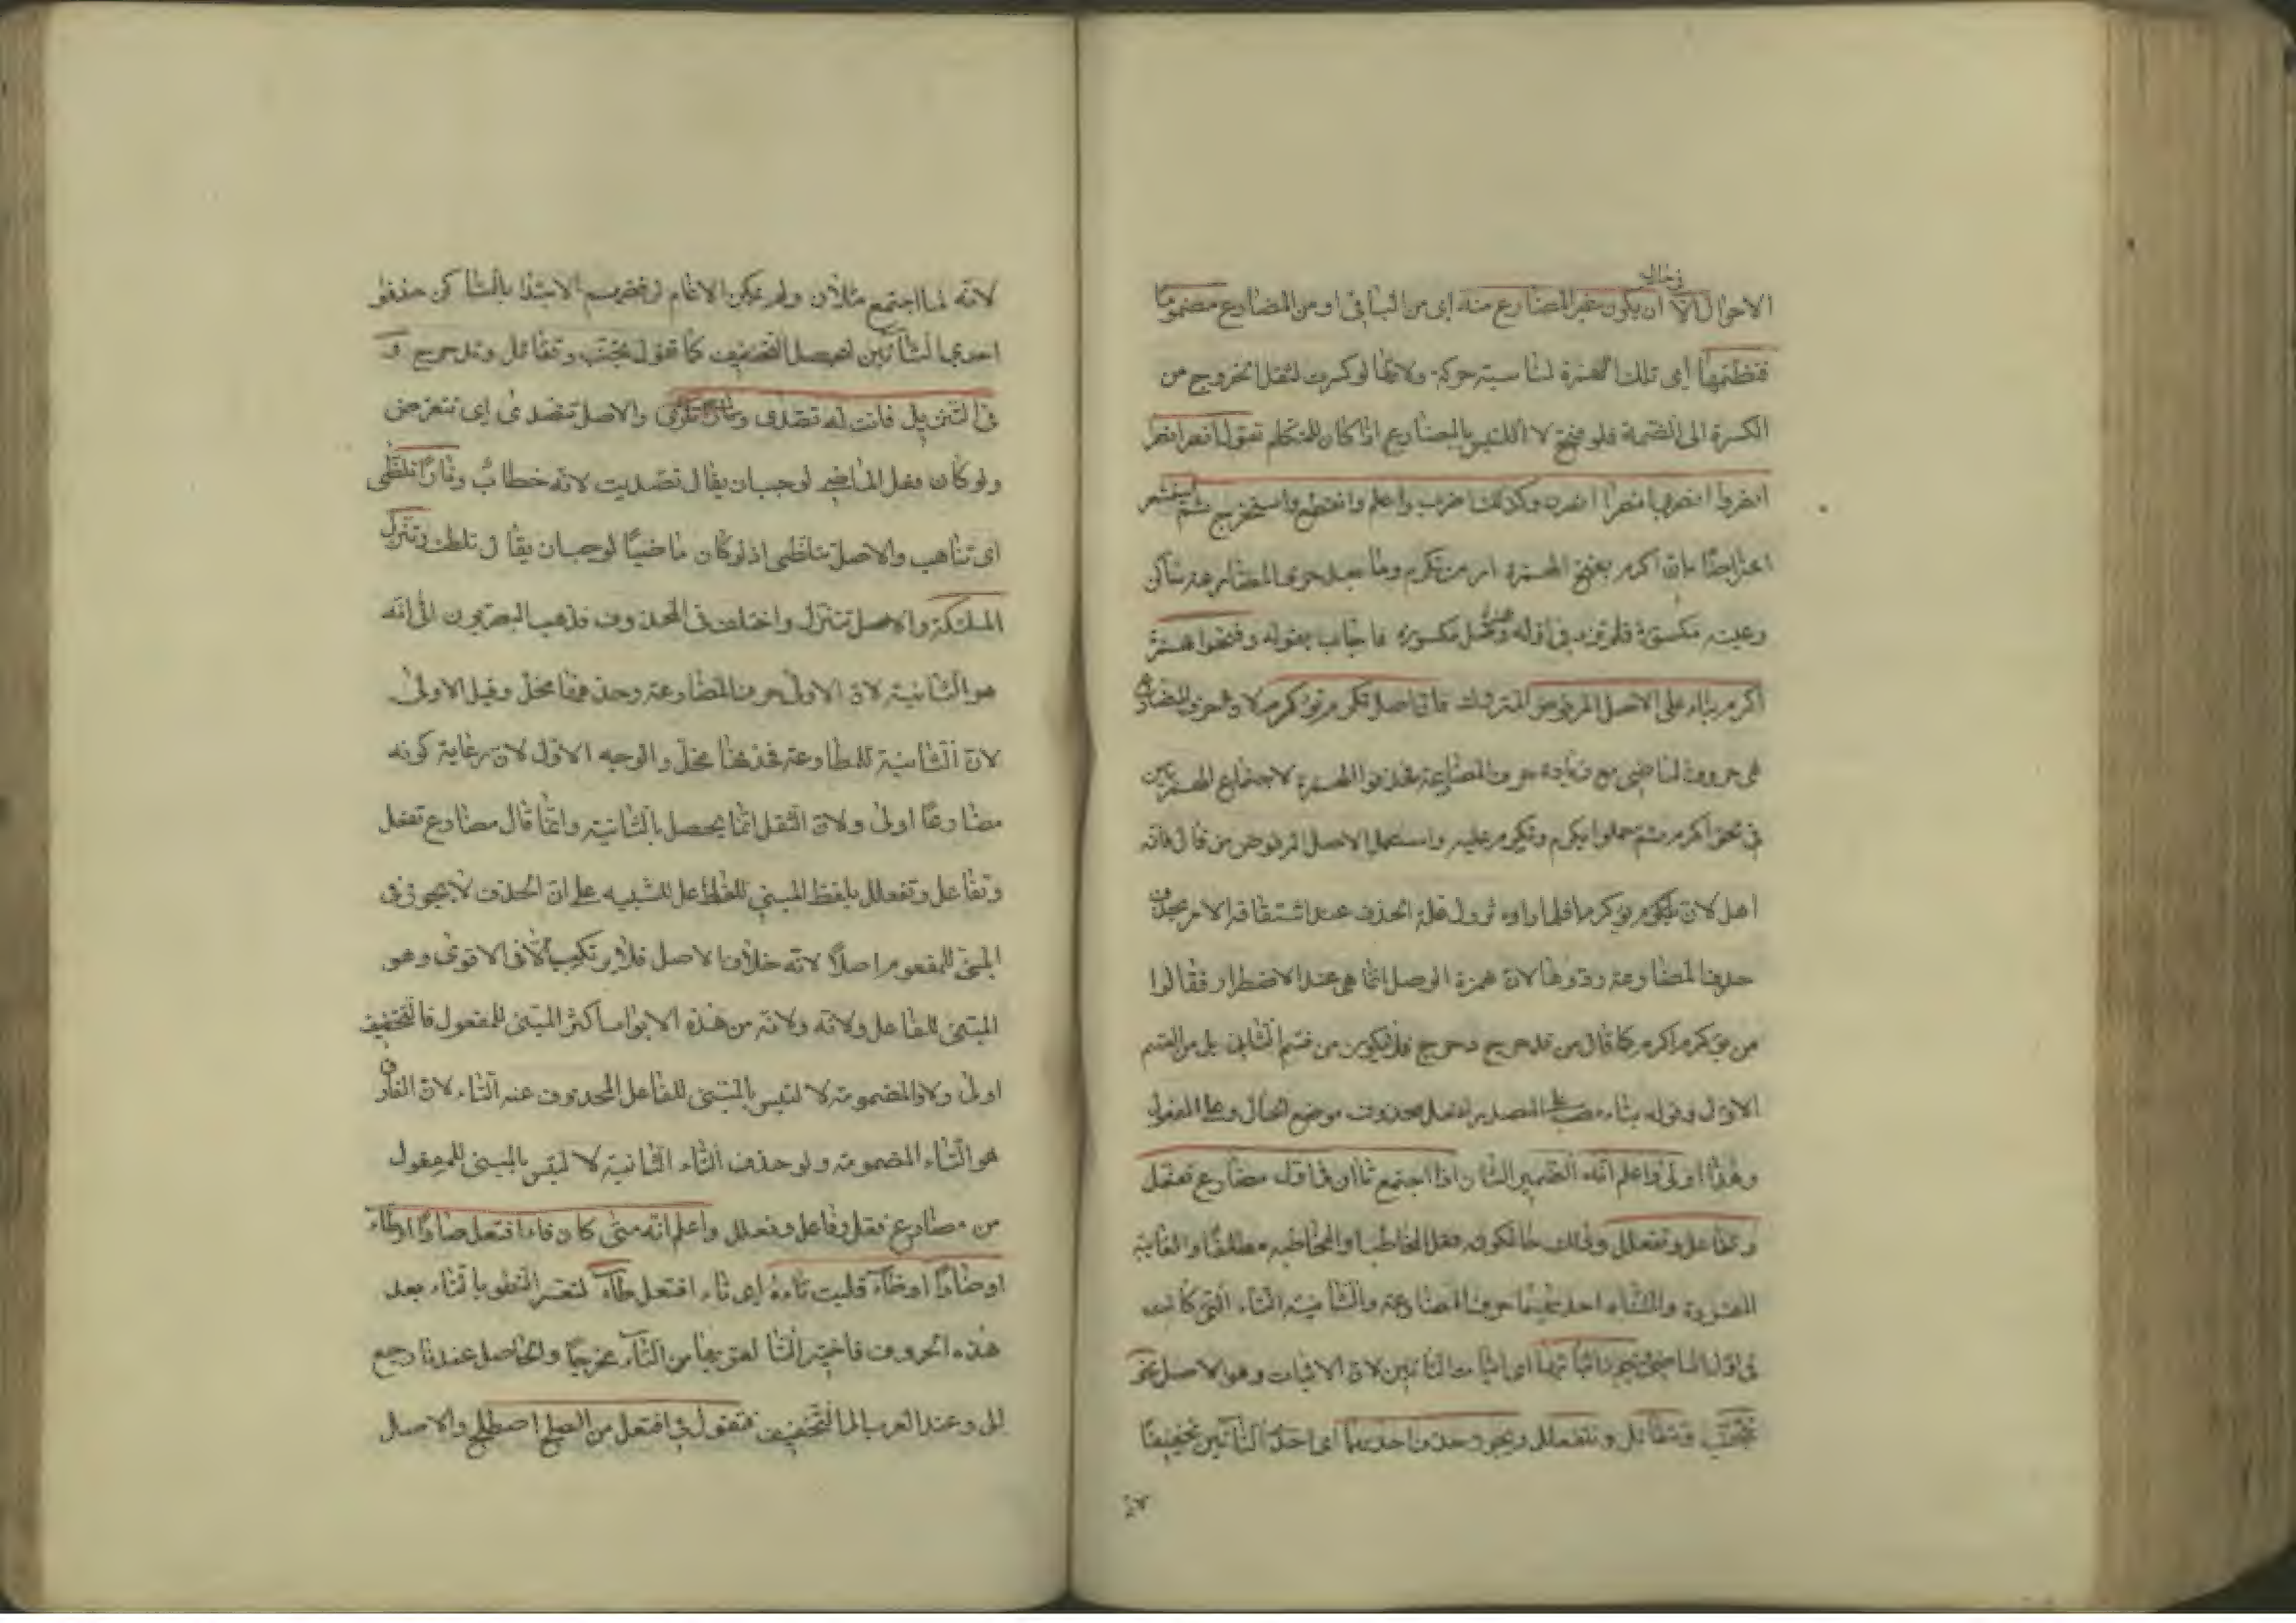 في حال
الاحوال الا ان يكون عين المضارع منه اى من الباقى او من المضارع مضموما
فتضمها اى تلك الهمزة لمناسبة حركة ولانها لو كسرت لثقل الخروج من
الكسرة الى الضمة فلو فتح لالتبس بالمضارع اذا كان للمتكلم تقول انصر انصرا
انصروا انصرى انصرا انصرن وكذلك اضرب واعلم وانقطع واستخرج ثم استشعر
اعتراضا بان اكرم بفتح الهمزة امر من تكرم وما بعد حرف المضارعة ساكن
وعينه مكسورة فلم تزد فى اوله همزة وصل مكسورة فاجاب بقوله وفتحوا همزة
اكرم بناء على الاصل المرفوض المتروك فان اصل تكرم تؤكرم لان حرف المضارع
هى حروف الماضى مع زيادة حرف المضارعة فحذفوا الهمزة لاجتماع الهمزتين
فى نحو اكرم ثم حملوا يكرم وتكرم عليه واستعمل الاصل المرفوض من قال فانه
اهل لان يؤكرما فلما راوه تزول علة الحذف عند اشتقاق الامر بحذف
حرف المضارعة ردوها لان همزة الوصل انما هى عند الاضطرار فقالوا
من تؤكرم اكرم كما قال من تدحرج دحرج فلا يكون من قسم الثانى بل من القسم
الاول وقوله بناء نصب على المصدر لفعل محذوف موضع الحال وعلى المفعول
وهذا اولى واعلم انه الضمير الشان اذا اجتمع تاان فى اول مضارع تفعل
وتفاعل وتفعلل وذلك حال كونه فعل المخاطب او المخاطبة مطلقا والغائبة
المفردة والمثناة احديهما حرف المضارعة والثانية التاء التى كانت
فى اول الماضى فيجوز اثباتهما اى اثبات التائين لان الاثبات وهو الاصل نحو
تتجنب وتتقاتل وتتفعلل ويجوز حذف احديهما اى احدى التائين تخفيفا
لانه لما اجتمع مثلان ولم يمكن الادغام لرفضهم الابتدا بالساكن حذفوا
احدى التائين ليحصل التخفيف كما تقول تجنب وتقاتل وتدحرج و
فى التنزيل فانت له تصدى والاصل تتصدى اى تتعرض
ولو كان فعل الماضى لوجب ان يقال تصديت لانه خطاب ونارا تلظى
اى تتاهب والاصل تتلظى اذ لو كان ماضيا لوجب ان يقال تلظت وتنزل
الملئكة والاصل تتنزل واختلف فى المحذوف فذهب البصريون الى انه
هو الثانية لان الاولى حرف المضارعة وحذفها مخل وقيل الاولى
لان الثانية للمطاوعة فحذفها مخل والوجه الاول لان رعاية كونه
مضارعا اولى ولان الثقل انما يحصل بالثانية وانما قال مضارع تفعل
وتفاعل وتفعلل بلفظ المبنى للفاعل للتنبيه على ان الحذف لا يجوز فى
المبنى للمفعول اصلا لانه خلاف الاصل فلا يرتكب الا فى الاقوى وهو
المبنى للفاعل ولانه ولانه من هذه الابواب اكثر المبنى للمفعول فالتخفيف
اولى ولان المضمومة لالتبس بالمبنى للفاعل المحذوف عنه التاء لان الفارق
هو التاء المضمومة ولو حذف التاء الثانية لالتبس بالمبنى للمفعول
من مضارع فعل وفاعل وفعلل واعلم انه متى كان فاء افتعل صادا او طاء
او ضادا او ظاء قلبت تاءه اى تاء افتعل طاء لتعسر النطق بالتاء بعد
هذه الحروف فاختير الطا لقربها من التاء مخرجا والحاصل عندنا رجع
الى وعند العرب الى التخفيف فتقول فى افتعل من الصلح اصطلح والاصل